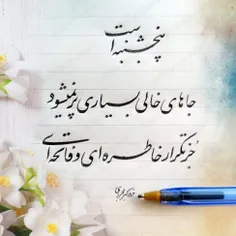 پنجشنبه است
جاهای خالی بسیاری پر نمیشود
جز بتکرار خاطره ای و فاتحه ای